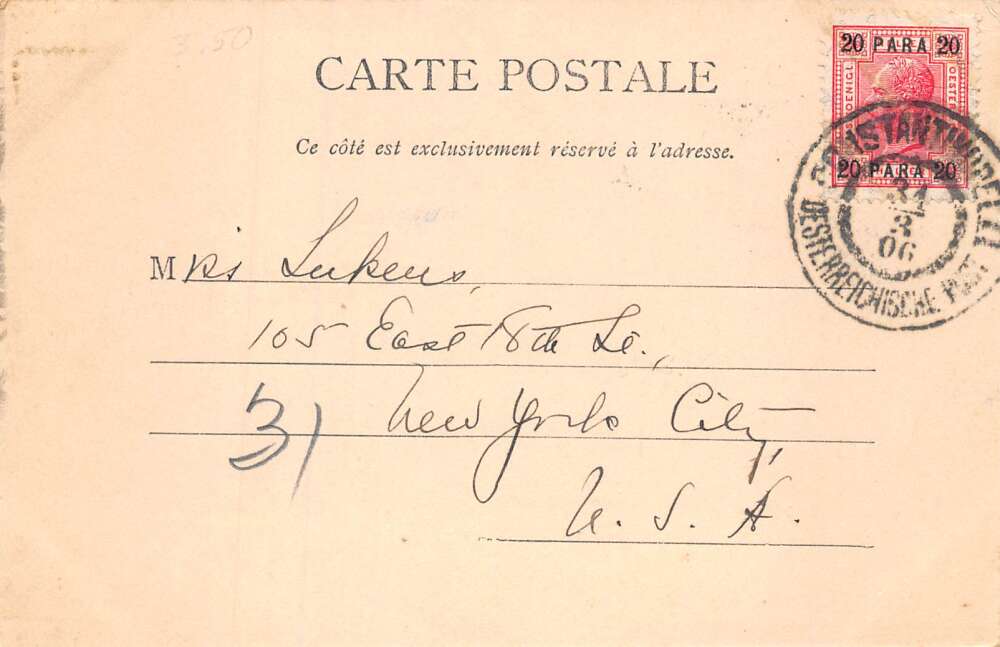 3.50
20 PARA 20
CARTE POSTALE
Ce côté est exclusivement réservé à l'adresse.
20 PARA 20
OESTERREICHISCHE POST
06
Mrs Lukens,
105 East 18th St.,
31 New York City,
U. S. A.